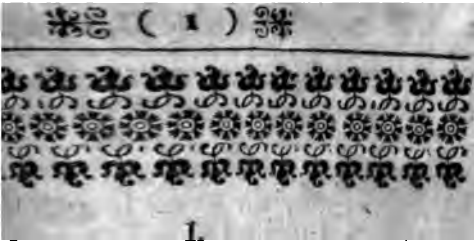 ( 1 )
I.